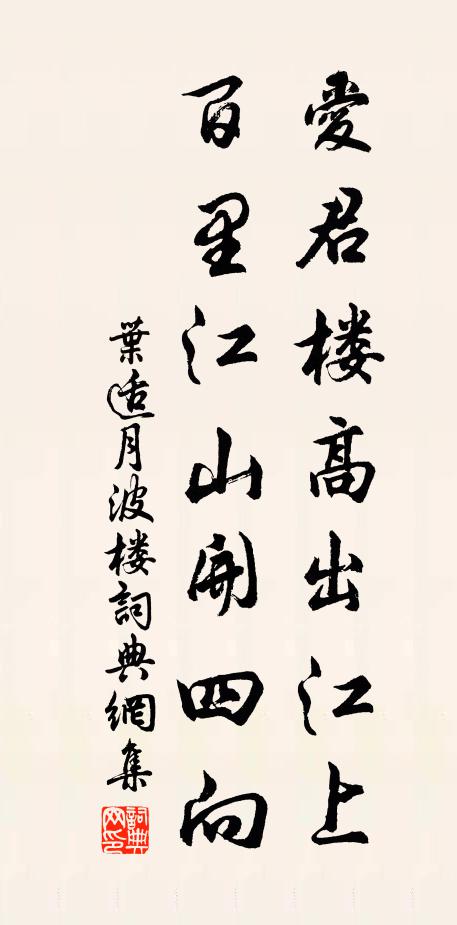 愛君楼高出江上
百里江山開四向
葉适月波楼詞典網集
詞典网印